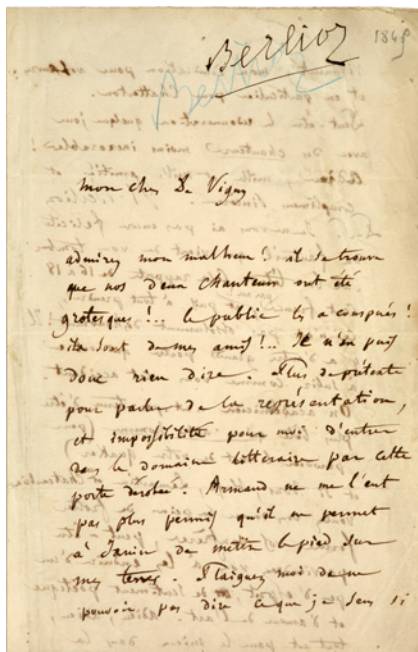 Berlioz
1849
Berlioz
mon cher De Vigny
admirez mon malheur! il se trouve
que nos deux chanteurs ont été
grotesques!.. le public les a conspués!
ils sont de mes amis!.. Je n'en puis
donc rien dire. Plus de prétexte
pour parler de la représentation,
et impossibilité pour moi d'entrer
dans le domaine littéraire par cette
porte dérobée. Armand ne me l'eut
pas plus permis qu'il ne permet
à Janin de mettre le pied sur
mes terres. Plaignez moi de ne
pouvoir pas dire ce que je sens si